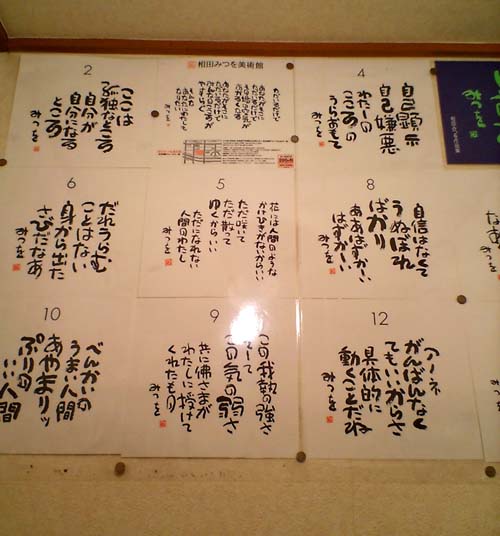 2
ここは
孤独なところ
自分が
自分になる
ところ
みつを
相田みつを美術館
ただいるだけで
みつを
4
自己顕示
自己嫌悪
わたしの
こころの
うらおもて
みつを
6
だれうらむ
ことはない
身から出た
さびだなあ
みつを
5
花には人間のような
かけひきがないからいい
ただ咲いて
ただ散って
ゆくからいい
ただになれない
人間のわたし
みつを
8
自信はなくて
うぬぼれ
ばかり
ああはずかしい
はずかしい
みつを
10
べんかいの
うまい人間
あやまりッ
ぷりの
いい人間
9
この我執の強さ
そして
この気の弱さ
共に佛さまが
わたしに授けて
くれたもの
みつを
12
アノーネ
がんばんなく
てもいいからさ
具体的に
動くことだね
みつを